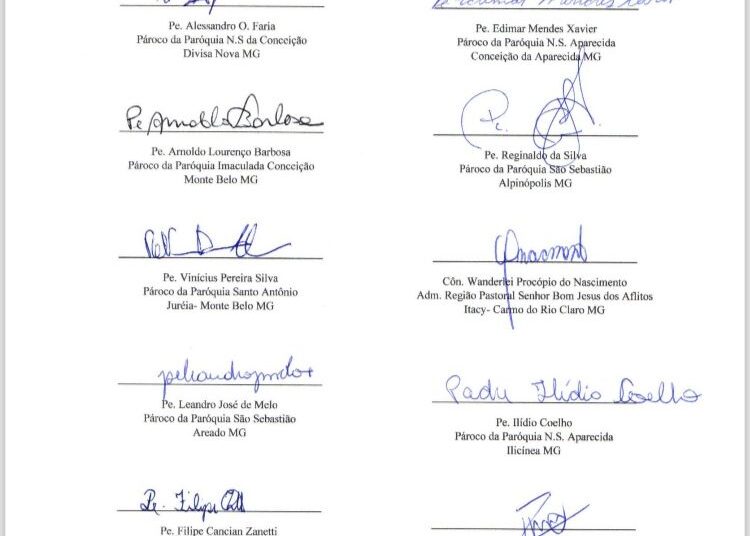 Pe. Alessandro O. Faria
Pároco da Paróquia N.S da Conceição
Divisa Nova MG
Pe. Edimar Mendes Xavier
Pároco da Paróquia N.S. Aparecida
Conceição da Aparecida MG
Pe Arnoldo Barbosa
Pe. Arnoldo Lourenço Barbosa
Pároco da Paróquia Imaculada Conceição
Monte Belo MG
Pe.
Pe. Reginaldo da Silva
Pároco da Paróquia São Sebastião
Alpinópolis MG
Pe. Vinícius Pereira Silva
Pároco da Paróquia Santo Antônio
Juréia- Monte Belo MG
Côn. Wanderlei Procópio do Nascimento
Adm. Região Pastoral Senhor Bom Jesus dos Aflitos
Itacy- Carmo do Rio Claro MG
Pe. Leandro José de Melo
Pároco da Paróquia São Sebastião
Areado MG
Padre Ilídio Coelho
Pe. Ilídio Coelho
Pároco da Paróquia N.S. Aparecida
Ilicínea MG
Pe. Filipe
Pe. Filipe Cancian Zanetti